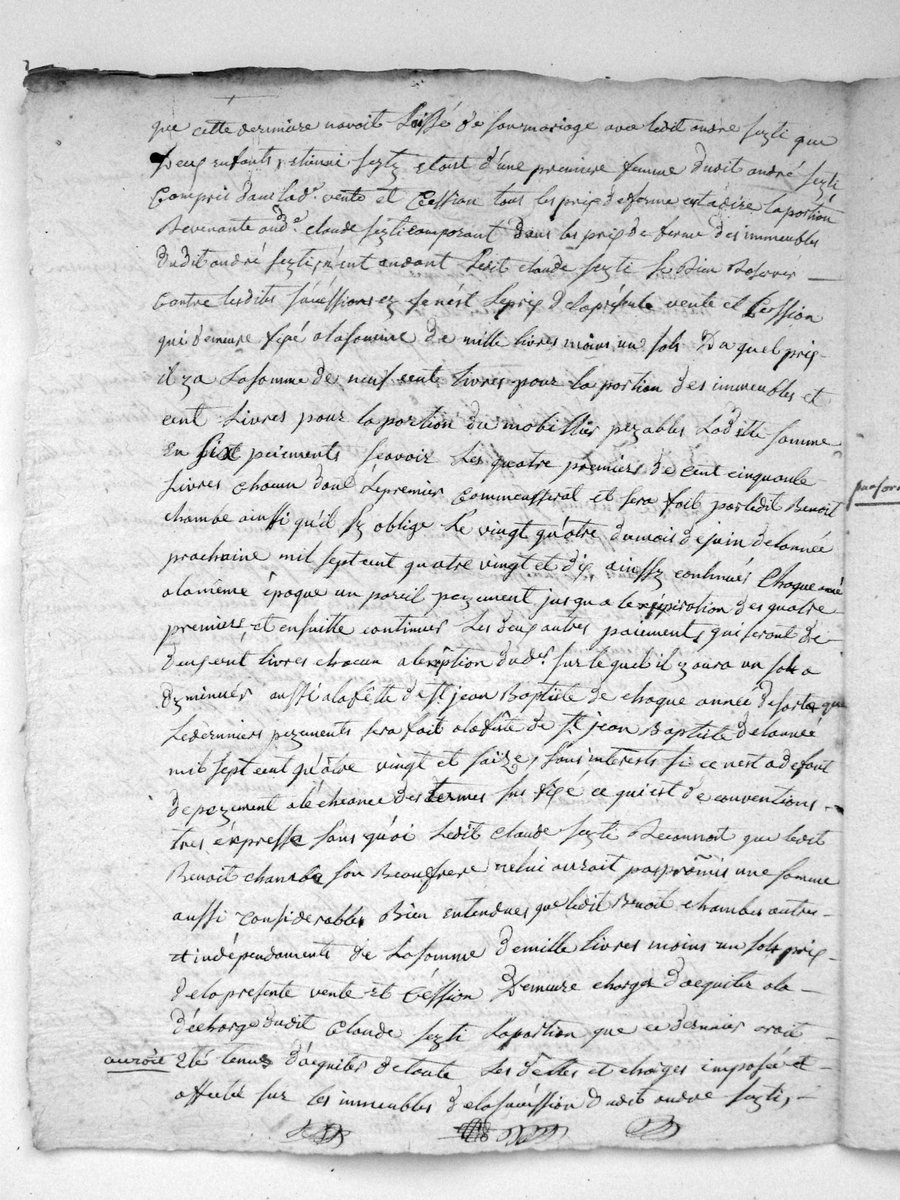 que cette derniere navoit Laissé de son mariage avec ledit andré sezti que
Deux enfants, etienne sezti, etant d'une premiere femme dudit andré sezti
Compris dans lad.e vente et Cession tous les prix de ferme est adire la portion
Revenante aud.t claude sezti composant dans les prix de ferme des immeubles
dudit andré sezti, ledit claude sezti Bien
Contre lesdites successions le prix de la présente vente et Cession
qui demeure fixé a la somme de mille livres moins un sols Du quel prix
il y a La somme de neuf cents livres pour la portion des immeubles et
cent Livres pour la portion du mobillier pezables Laditte somme
En Six paiements scavoir Les quatre premiers de cent cinquante
Livres chacun dont Le premier Commensserat et sera fait par ledit Benoit
chambe ainssi qu'il s'y oblige Le vingt quâtre du mois de juin de lannée
prochaine mil sept cent quatre vingt et dix ainssy continuér Chaque anné
a la même époque un pareil pezement jusqua le expiration des quatre
premiers et ensuitte continuer Les deux autres paiements qui seront de
deux cent livres chacun a l'exeption du der sur le quel il y aura un sols a
dyminuér aussi a la fête de St jean Baptiste de chaque année de sorte que
Le dernier pezements sera fait a la fête de St jean Baptiste de lanné
mil sept cent quâtre vingt et saize, sans interests si ce nest a defaut
de pezement a lécheance des termes sus fixé ce qui est de conventions
tres éxpresse sans quoi Ledit Claude sezti Reconnoit que ledit
Benoit chambe son Beaufrere ne lui auroit pas promis une somme
aussi Considerable, Bien entendues que ledit Benoit chambe outre
et indépendaments de La somme de mille livres moins un sols prix
de la présente vente et Céssion Demeure chargé d'acquiter a la
décharge dudit Claude sezti la portion que ce dernier avoit
auroit
Eté tenue d'acquiter de toute Les dettes et charges imposée et
affecté sur les immeubles de la succéssion dudit andre sezti,